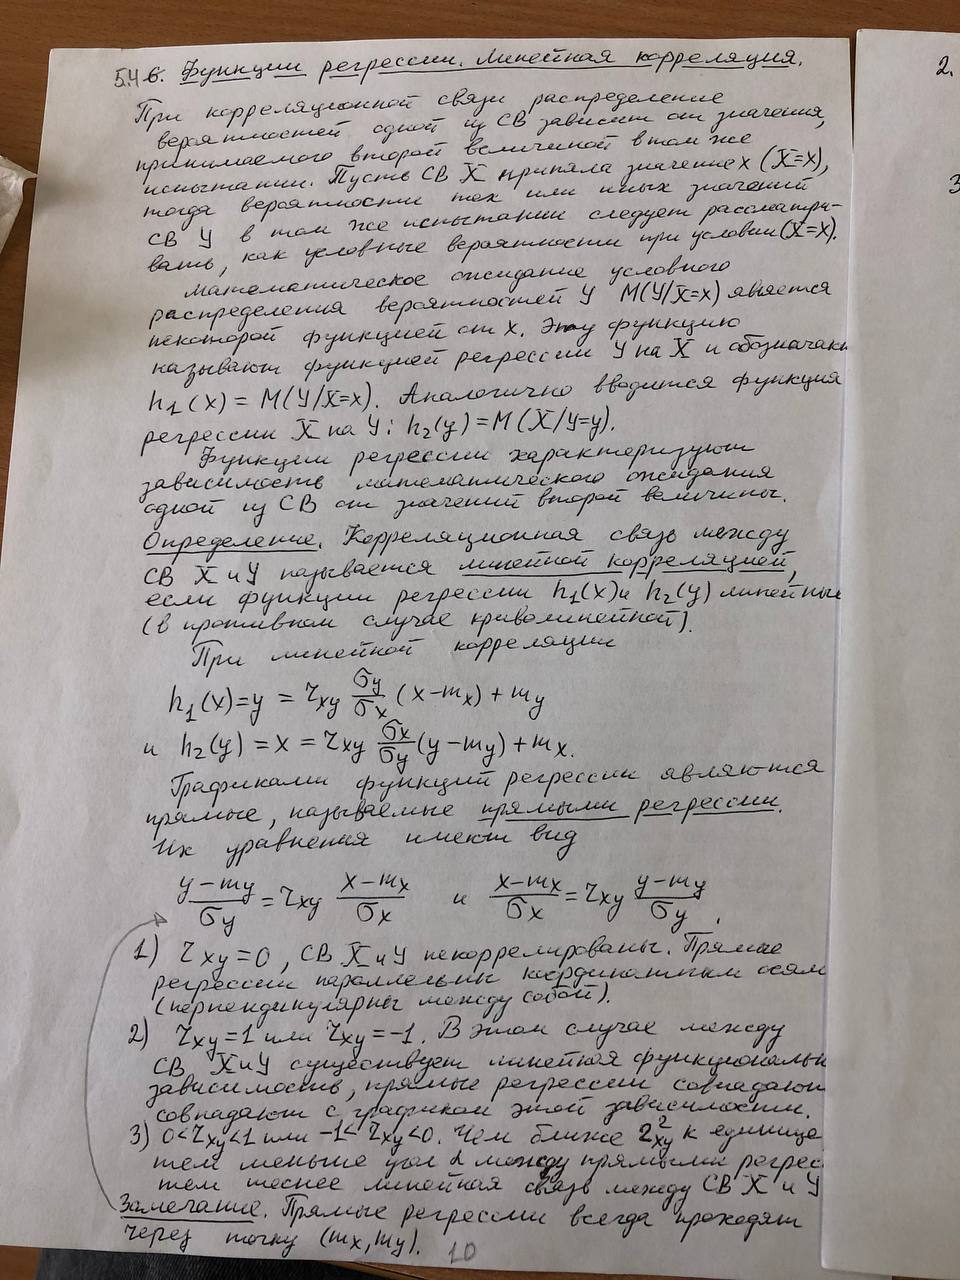 5.4 6. Функции регрессии. Линейная корреляция.
При корреляционной связи распределение
вероятностей одной из СВ зависит от значения,
принимаемого второй величиной в том же
испытании. Пусть СВ X приняла значение x (X=x),
тогда вероятности тех или иных значений
СВ Y в том же испытании следует рассматри-
вать, как условные вероятности при условии (X=x).
Математическое ожидание условного
распределения вероятностей Y M(Y/X=x) является
некоторой функцией от x. Эту функцию
называют функцией регрессии Y на X и обозначают
h₁(x) = M(Y/X=x). Аналогично вводится функция
регрессии X на Y: h₂(y) = M(X/Y=y).
Функции регрессии характеризуют
зависимость математического ожидания
одной из СВ от значений второй величины.
Определение. Корреляционная связь между
СВ X и Y называется линейной корреляцией,
если функции регрессии h₁(x) и h₂(y) линейные
(в противном случае криволинейной).
При линейной корреляции
h₁(x)=y = r_xy σ_y/σ_x (x-m_x) + m_y
и h₂(y) = x = r_xy σ_x/σ_y (y-m_y) + m_x.
Графиками функций регрессии являются
прямые, называемые прямыми регрессии.
Их уравнения имеют вид
(y-m_y)/σ_y = r_xy (x-m_x)/σ_x и (x-m_x)/σ_x = r_xy (y-m_y)/σ_y.
1) r_xy=0, СВ X и Y некоррелированы. Прямые
регрессии параллельны координатным осям
(перпендикулярны между собой).
2) r_xy=1 или r_xy=-1. В этом случае между
СВ X и Y существует линейная функциональн
зависимость, прямые регрессии совпадают
совпадают с графиком этой зависимости.
3) 0<r_xy<1 или -1<r_xy<0. Чем ближе r²_xy к единице
тем меньше угол α между прямыми регрес
тем теснее линейная связь между СВ X и Y
Замечание. Прямые регрессии всегда проходят
через точку (m_x, m_y).
10
2.
3